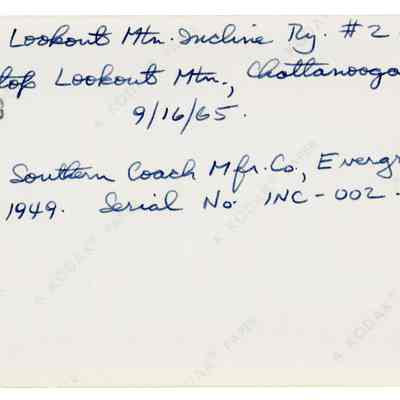 Lookout Mtn. Incline Ry. #2
top Lookout Mtn., Chattanooga
9/16/65.
Southern Coach Mfr. Co., Evergr
1949. Serial No. INC-002.
A KODAK PAPER
A KODAK® PAPER
A KODAK® PAPER
A KODAK
A KODAK® PAPER